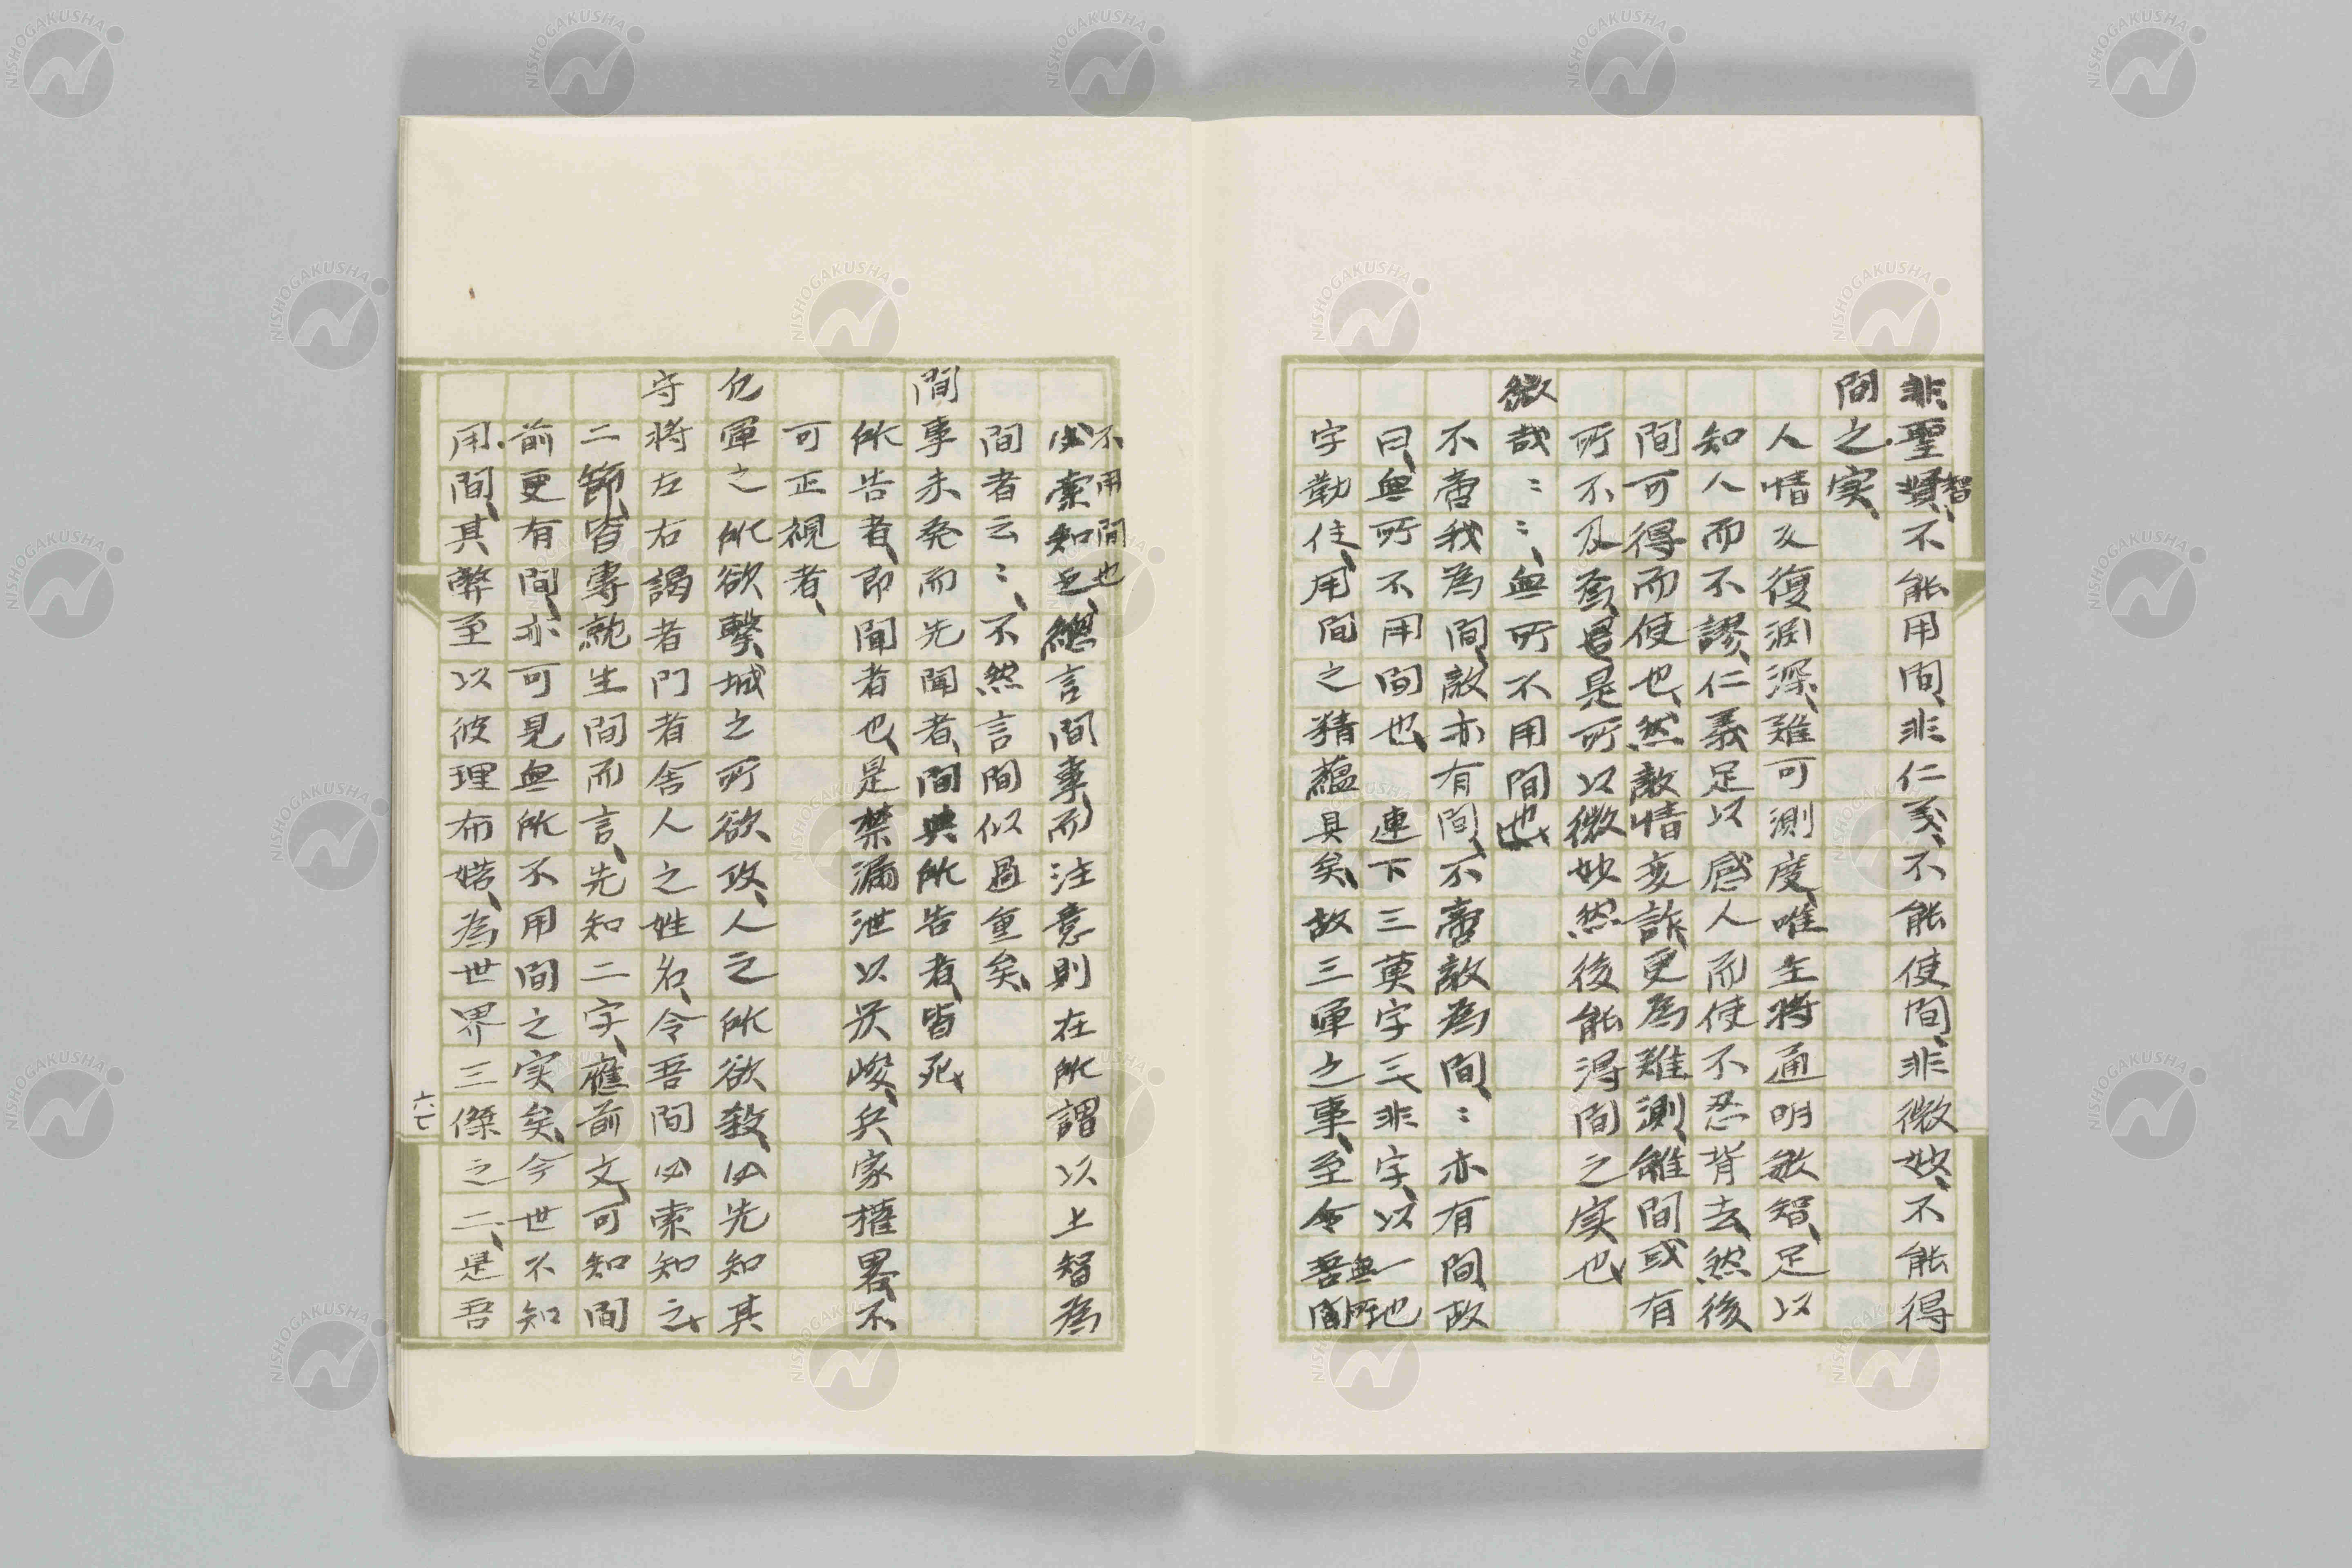 非聖智不能用間、非仁義、不能使間、非微妙、不能得
間之実、
人情反復淵深、難可測度、唯主將通明敏智、足以
知人而不謬、仁義足以感人而使不忍背去、然後
間可得而使也、然敵情変詐更為難測、雖間或有
所不及焉、是所以微妙然後能得間之実也
微哉〻〻、無所不用間也、
不啻我為間、敵亦有間、不啻敵為間、〻亦有間、故
曰、無所不用間也、 連下三莫字三非字、以一也
字勤住、用間之精蘊具矣、故三軍之事、至令無所
不用間也
必索知之、總言間事而注意則在所謂以上智為
間者云〻、不然言間似過重矣、
間事未発而先聞者、間與所告者、皆死、
所告者、即聞者也、是禁漏泄以厳峻、兵家権畧、不
可正視者、
凡軍之所欲擊、城之所欲攻、人之所欲殺、必先知其
守將左右謁者門者舍人之姓名、令吾間必索知之、
二節皆專就生間而言、先知二字、應前文、可知間
前更有間、亦可見無所不用間之実矣、今世不知
用間、其弊至以彼理布婼、為世界三傑之二、是吾
NISHOGAKUSHA
六七